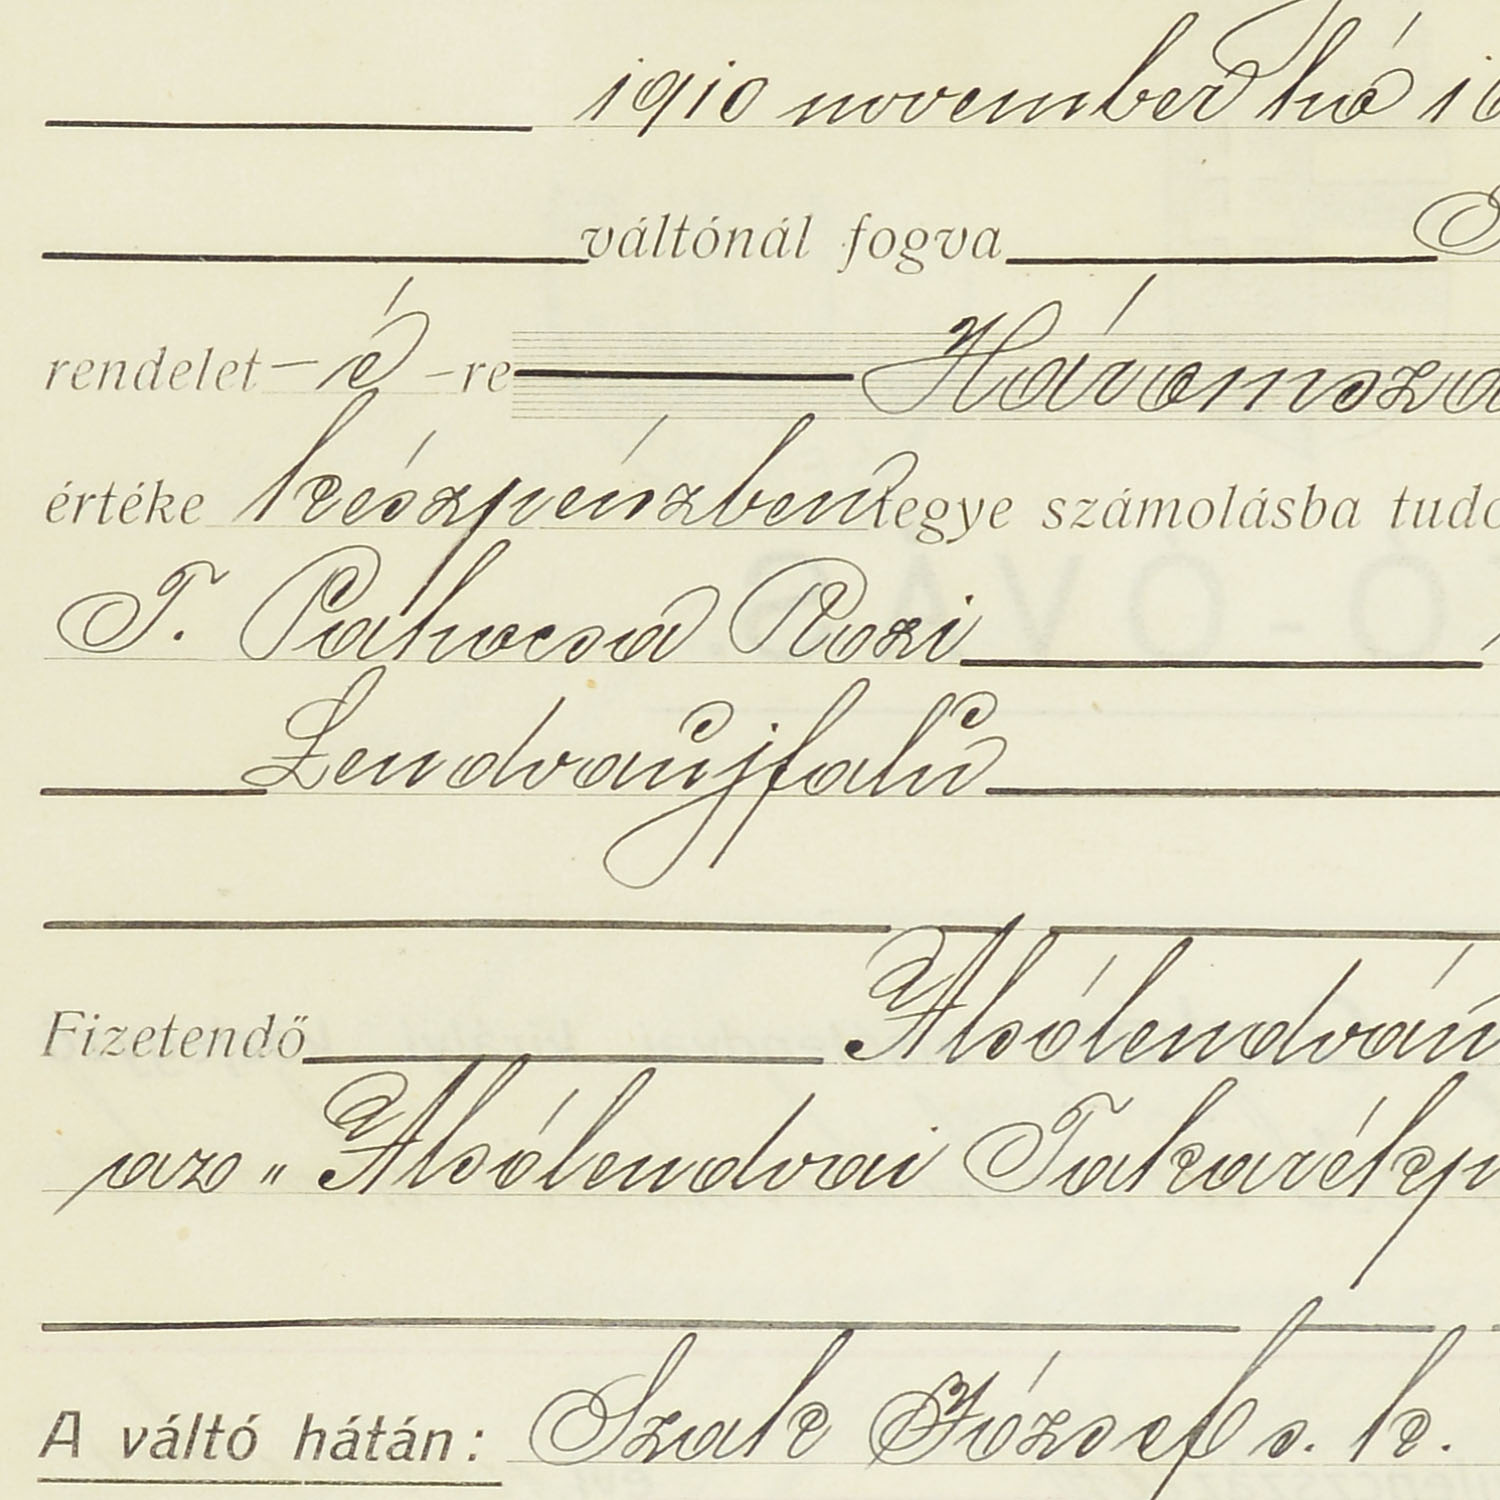 1910 november hó
váltónál fogva
rendelet-é-re Háromszá
értéke készpénzben tegye számolásba tudo
T. Pahocsa Rozi
Lendvaújfalu
Fizetendő Alsólendván
az "Alsólendvai Takarékp
A váltó hátán: Szak József s. k.